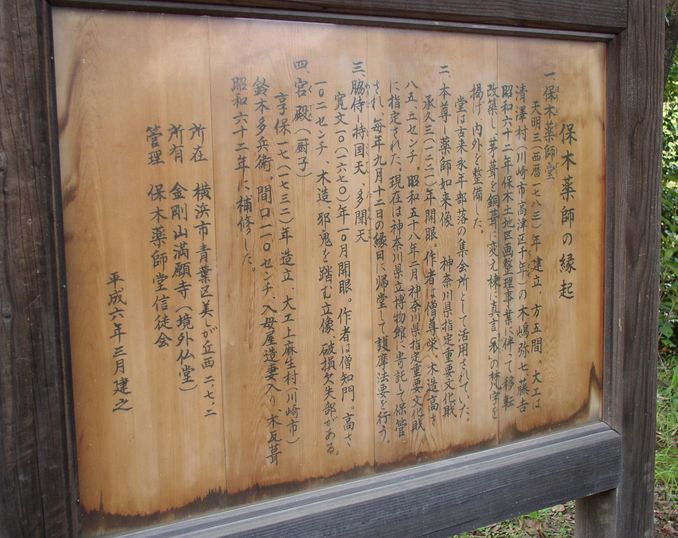 保木薬師の縁起
一、保木薬師堂
天明三(西暦一七八三)年 建立、方五間、大工は
清澤村(川崎市高津区千年)の木嶋弥七藤吉
昭和六十二年保木土地区画整理事業に伴って移転
改築し、茅葺を銅葺に変え棟に真言の梵字を
掲げ、内外を整備した。
堂は古来永年部落の集会所として活用されていた。
二、本尊―薬師如来像 神奈川県指定重要文化財
承久三(一二二一)年開眼。作者は僧尊栄、木造高さ
八五、五センチ、昭和五十八年二月神奈川県指定重要文化財
に指定された。現在は神奈川県立博物館に寄託して保管
され、毎年九月十二日の縁日に帰堂して護摩法要を行う。
三、脇侍―持国天、多聞天
寛文一〇(一六七〇)年一〇月開眼。作者は僧知門。高さ
一〇二センチ、木造 邪鬼を踏む立像、破損欠失部がある。
四、宮殿(厨子)
享保一七(一七三二)年造立、大工上麻生村(川崎市)
鈴木多兵衛、間口一一〇センチ、入母屋造妻入り、木瓦葺
昭和六十二年に補修した。
所在 横浜市青葉区美しが丘西二、七、二
所有 金剛山満願寺(境外仏堂)
管理 保木薬師堂信徒会
平成六年三月建之